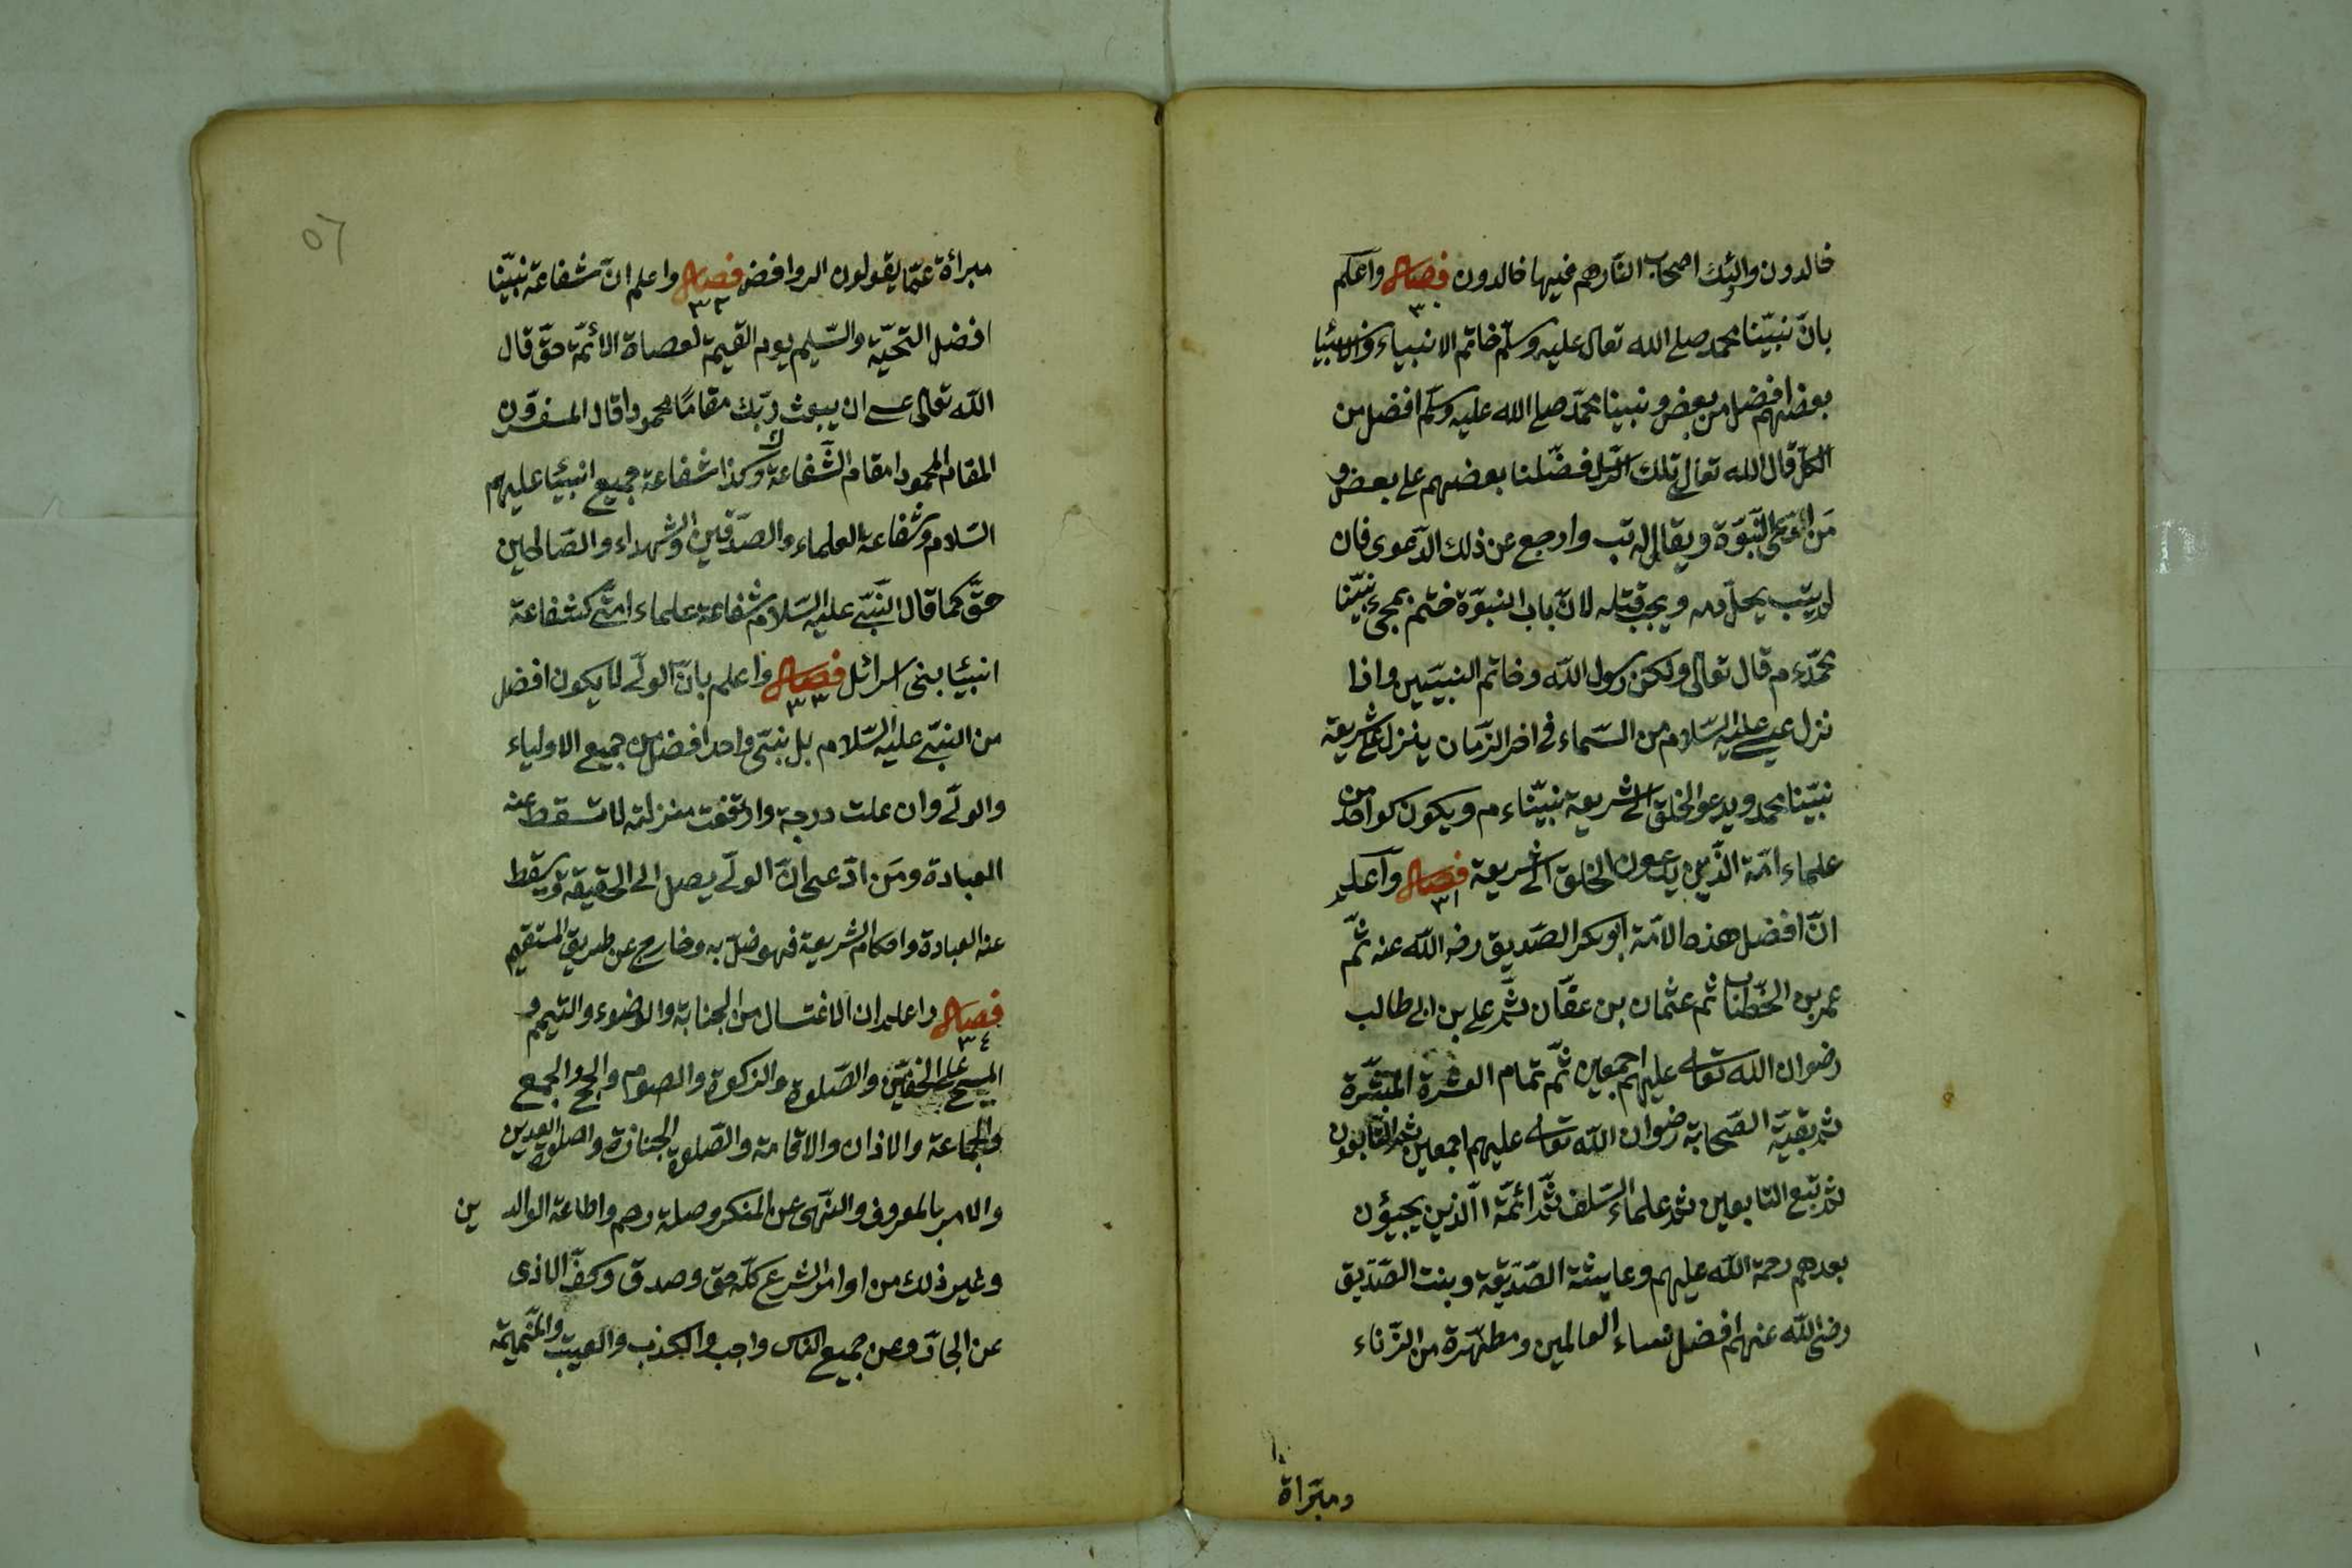 خالدون والئك اصحاب النار هم فيها خالدون فصل واعلم
٣٠
بانّ نبيّنا محمد صلى الله تعالى عليه وسلّم خاتم الانبياء والانبيا
بعضهم افضل من بعض ونبينا محمّد صلى الله عليه وسلّم افضل من
الكلّ قال الله تعالى تلك الرّسل فضّلنا بعضهم على بعض و
مَن ادّعى النّبوّة ويقال له تب وارجع عن ذلك الدّعوى فان
لم يتب يحلّ دمه ويجب قتله لانّ باب النبوّة ختم بمجئ نبيّنا
محمّد ءم قال تعالى ولكن رسول الله وخاتم النبيّين واذا
نزل عيسى عليه السّلام من السّماء فى اخر الزّمان ينزل على شريعة
نبيّنا محمد ويدعو الخلق الى شريعة نبيّنا ءم ويكون كواحد من
علماء امّة الذّين يدعون الخلق الى شريعة فصل واعلم
٣١
انّ افضل هذه الامّة ابو بكر الصّديق رضه الله عنه ثمّ
عمر بن الخطّاب ثم عثمان بن عفّان ثمّ على بن ابى طالب
رضوان الله تعالى عليهم اجمعين ثمّ تمام العشرة المبشّرة
ثم بقيّة الصّحابة رضوان الله تعالى عليهم اجمعين ثم التّابعون
ثم تبع التابعين ثم علماء السّلف ثمّ ائمّة الّذين يجيؤن
بعدهم رحمة الله عليهم وعايشة الصّدّيقة وبنت الصّدّيق
رضى الله عنهم افضل نساء العالمين ومطهّرة من الزّناء
ومبّراة
٥٦
مبرأة عمّا يقولون الروافض فصل واعلم انّ شفاعة نبيّنا
٣٢
افضل التحيّة والسّليم يوم القيمة لعصاة الائمّة حقّ قال
الله تعالى عسى ان يبعث ربّك مقامًا محمودا قال المفسرون
المقام المحمود مقام الشّفاعة وكذا شفاعة جميع انبيا عليهم
السّلام وشفاعة العلماء والصدّقين والشهداء والصّالحين
حقّ كما قال النّبىّ عليه السّلام شفاعة علماء امتى كشفاعة
انبيا بنى اسرائل فصل واعلم بانّ الولىّ لا يكون افضل
٣٣
من النبىّ عليه السّلام بل نبىّ واحد افضل من جميع الاولياء
والولىّ وان علت درجة وارتفعت منزلته لا تسقط عنه
العبادة ومَن ادّعى انّ الولىّ يصل الى الحقيقة ويسقط
عنه العبادة واحكام الشريعة فهو ضلّ به وخارج عن طريق المستقيم
فصل واعلم ان الاغتسال من الجنابة والوضوء والتيمم و
٣٤
المسح على الخفّين والصّلوة والزكوة والصوم والحج والجمع
والجماعة والاذان والاقامة والصّلوة الجنازة واصلوة العدين
والامر بالمعروف والنّهى عن المنكر وصلة رحم واطاعة الوالدين
وغير ذلك من اوامر الشرع كلّه حق وصدق وكفّ الاذى
عن الجارّ وعن جميع الناس واجب والكذب والغيبة والنّميمة